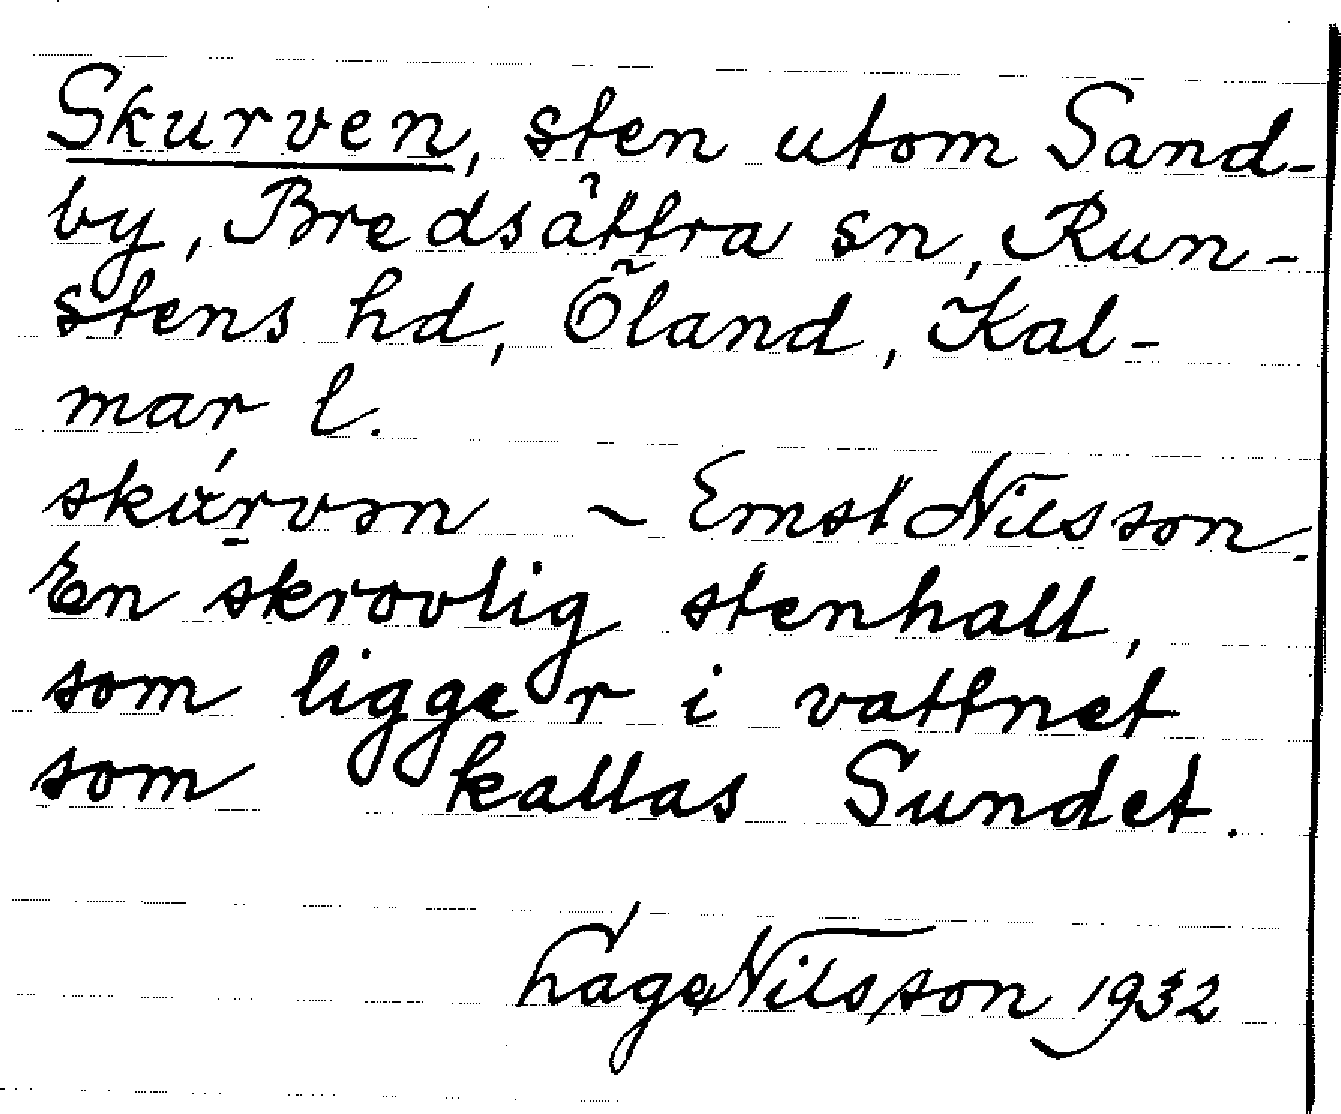 Skurven, sten utom Sand-
by, Bredsättra sn, Run-
stens hd, Öland, Kal-
mar l.
skúrvən ~ Ernst Nilsson.
En skrovlig stenhall,
som ligger i vattnet
som kallas Sundet.
Nilsson 1932